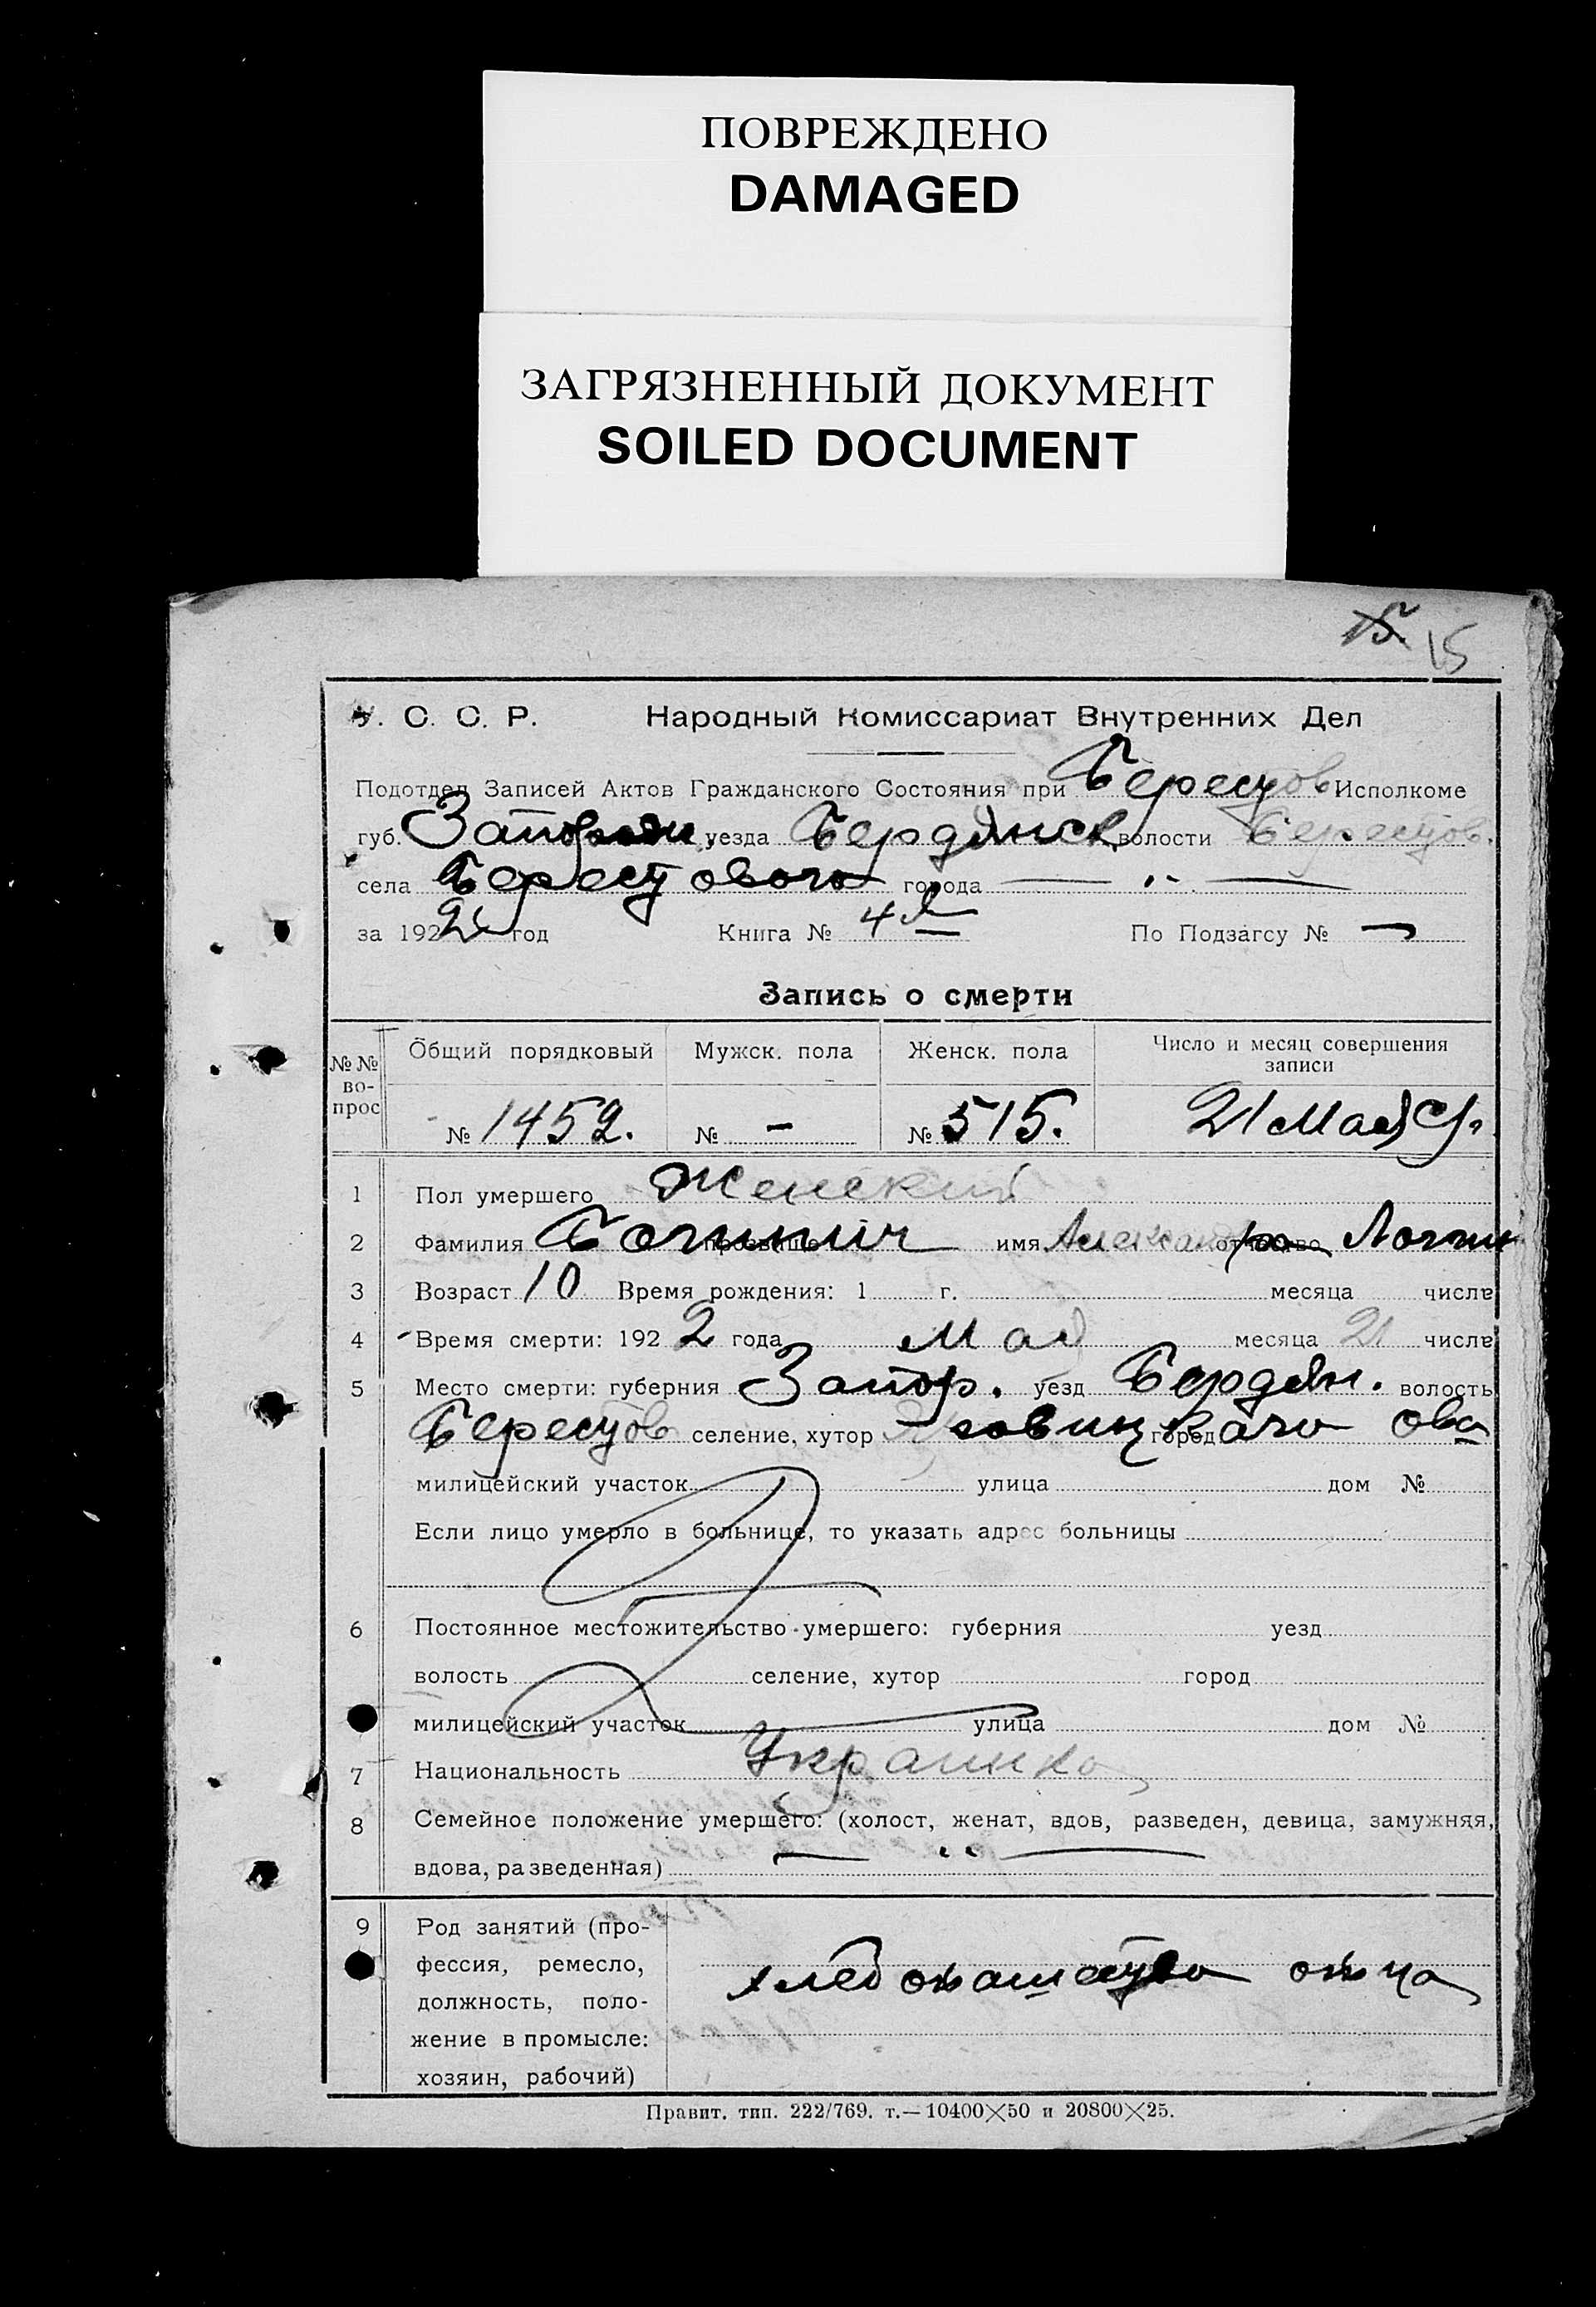 ПОВРЕЖДЕНО
DAMAGED
ЗАГРЯЗНЕННЫЙ ДОКУМЕНТ
SOILED DOCUMENT
15 15
У. С. С. Р. Народный Комиссариат Внутренних Дел
Подотдел Записей Актов Гражданского Состояния при Берестов Исполкоме
губ. Запорож уезда Бердянск волости Берестов.
села Берестового города — " —
за 1922 год Книга № 4 По Подзагсу № —
Запись о смерти
№№ вопрос Общий порядковый Мужск. пола Женск. пола Число и месяц совершения записи
№ 1452. № - № 515. 21 Мая
1 Пол умершего Женский
2 Фамилия прозвище имя Александра отчество Логгин
3 Возраст 10 Время рождения: 1 г. месяца числа
4 Время смерти: 192 2 года Мая месяца 21 числа
5 Место смерти: губерния Запор. уезд Бердян. волость
Берестов селение, хутор город
милицейский участок улица дом №
Если лицо умерло в больнице, то указать адрес больницы
6 Постоянное местожительство умершего: губерния уезд
волость селение, хутор город
милицейский участок улица дом №
7 Национальность Украинка
8 Семейное положение умершего: (холост, женат, вдов, разведен, девица, замужняя,
вдова, разведенная) — " —
9 Род занятий (про-
фессия, ремесло,
должность, поло-
жение в промысле:
хозяин, рабочий)
хлебопашество отца
Правит. тип. 222/769. т.—10400×50 и 20800×25.